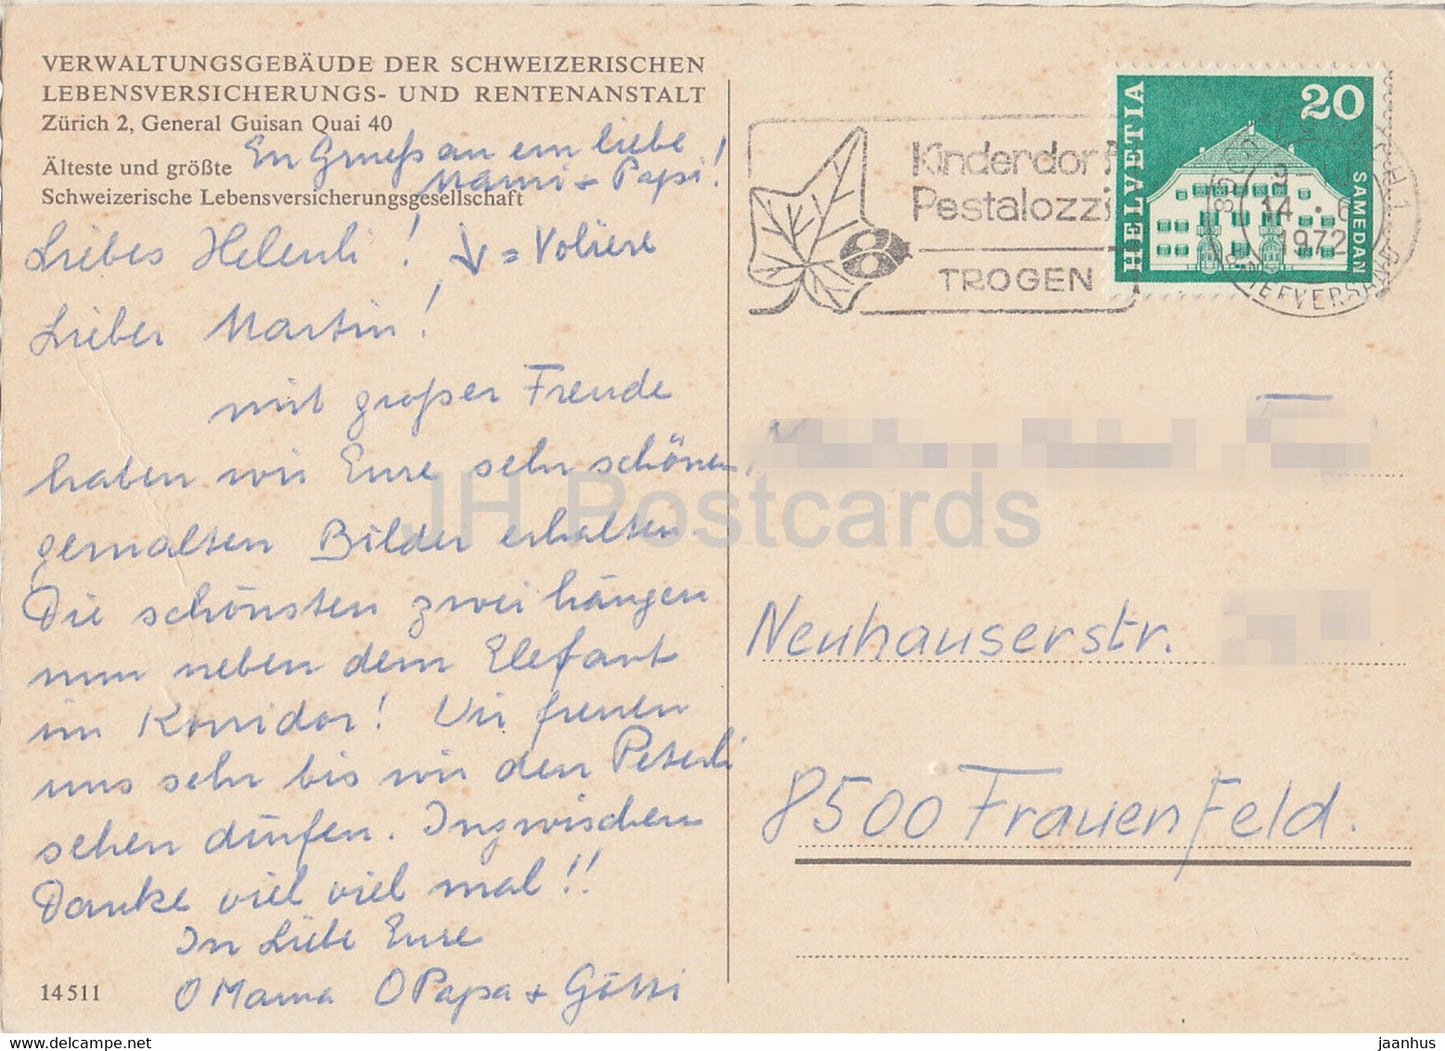 VERWALTUNGSGEBÄUDE DER SCHWEIZERISCHEN
LEBENSVERSICHERUNGS- UND RENTENANSTALT
Zürich 2, General Guisan Quai 40
En Grueß an em liebe
Mami + Papi!
Älteste und größte
Schweizerische Lebensversicherungsgesellschaft
Liebes Helenli! ↓ = Voliere
Lieber Martin!
mit großer Freude
haben wir Eure sehr schönen
gemalten Bilder erhalten.
Die schönsten zwei hängen
nun neben dem Elefant
im Korridor! Wir freuen
uns sehr bis wir den Peterli
sehen dürfen. Inzwischen
Danke viel viel mal!!
In Liebe Eure
O Mama O Papa + Götti
14511
Kinderdorf
Pestalozzi
TROGEN
HELVETIA
20
SAMEDAN
14.-6
1972
BRIEFVERSAND
Neuhauserstr.
8500 Frauenfeld.
JH Postcards
delcampe.net
jaanhus